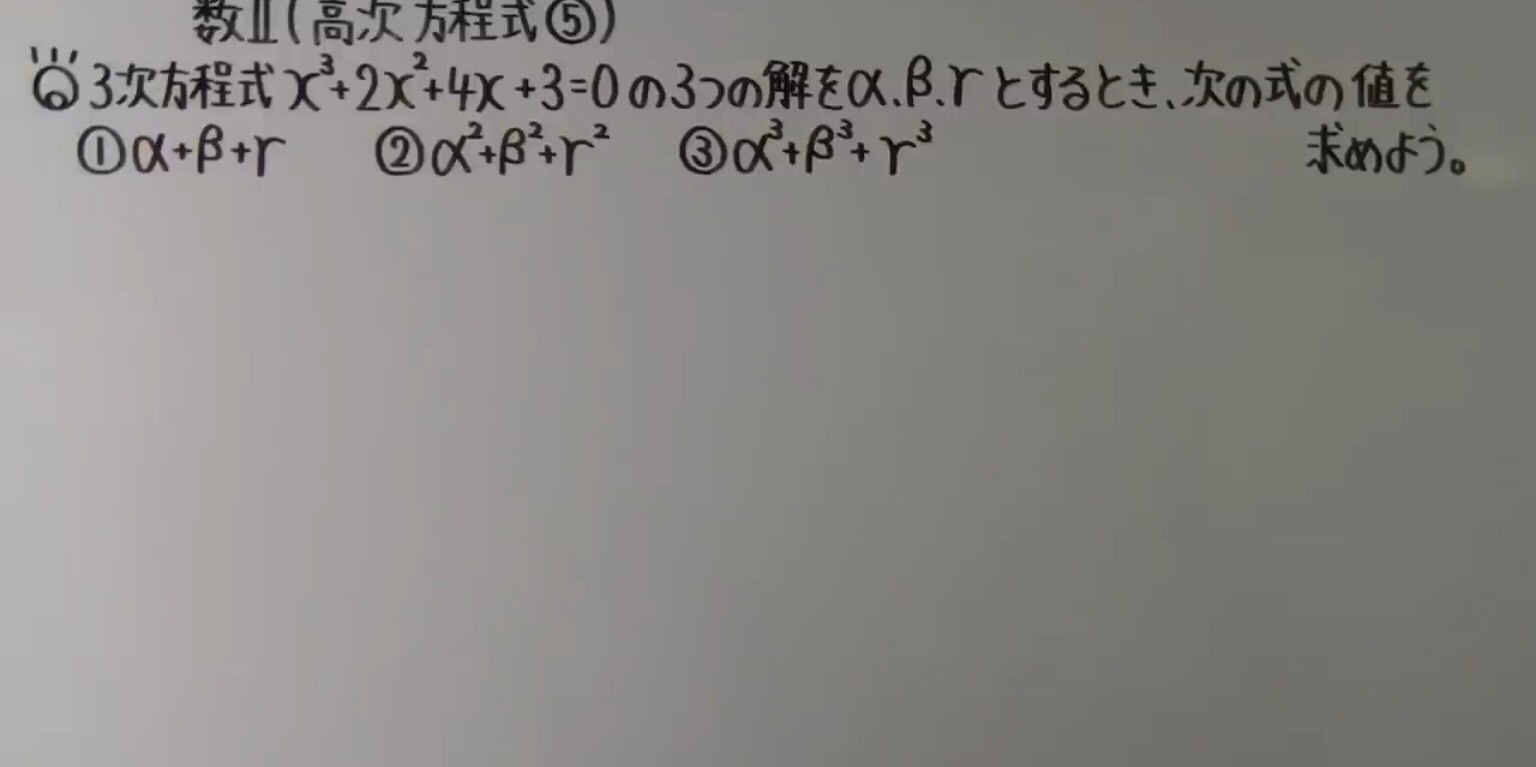 数Ⅱ(高次方程式⑤)
Q 3次方程式x³+2x²+4x+3=0の3つの解をα、β、γとするとき、次の式の値を求めよう。
①α+β+γ ②α²+β²+γ² ③α³+β³+γ³